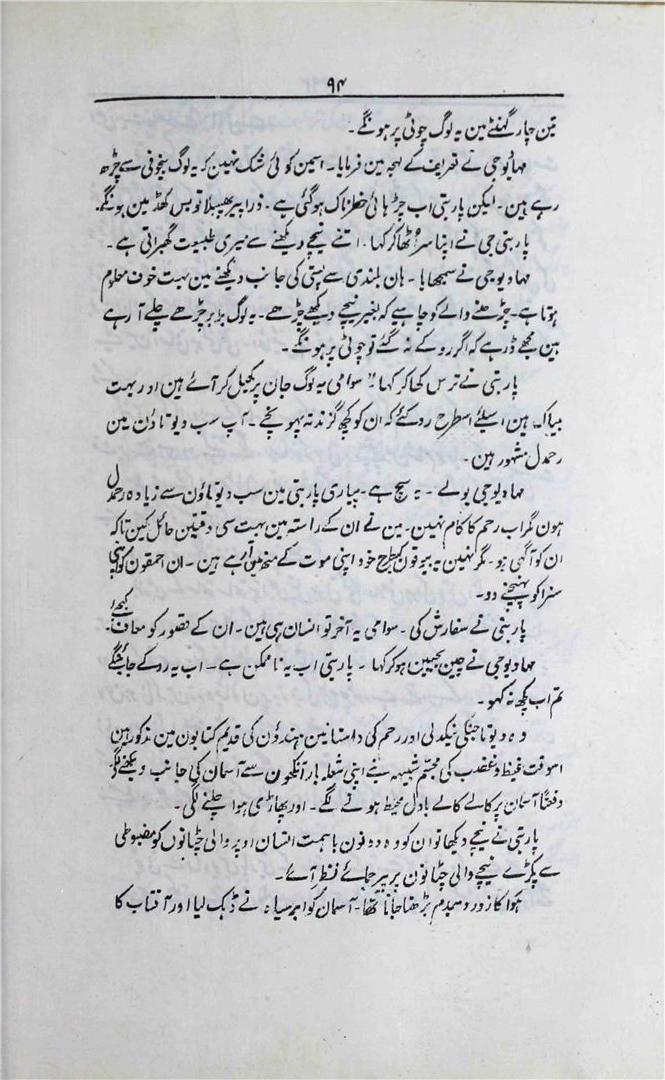 ۹۴
تین چار گھنٹے مین یہ لوگ چوٹی پر ہونگے۔
مہادیوجی نے تعریف کے لہجہ مین فرمایا۔ اسمین کوئی شک نہین کہ یہ لوگ بیخوفی سے چڑھ
رہے ہین۔ لیکن پاربتی اب چڑہائی خطرناک ہوگئی ہے۔ ذرا پیر پھسلا تو بس کھڈ مین ہونگے۔
پاربتی جی نے اپنا سر اُٹھا کر کہا۔ اتنے نیچے دیکھنے سے میری طبیعت گھبراتی ہے۔
مہادیوجی نے سمجھایا۔ ہان بلندی سے پستی کی جانب دیکھنے مین بہت خوف معلوم
ہوتا ہے۔ چڑھنے والے کو چاہیے کہ بغیر نیچے دیکھے چڑھے۔ یہ لوگ برابر چڑھے چلے آرہے
ہین مجھے ڈر ہے کہ اگر روکے نہ گئے تو چوٹی پر ہونگے۔
پاربتی نے ترس کھا کر کہا۔ سوامی یہ لوگ جان پر کھیل کر آئے ہین اور بہت
بیباک ہین اسلئے اسطرح روکئے کہ ان کو کچھ گزند نہ پہونچے۔ آپ سب دیوتاؤن مین
رحمدل مشہور ہین۔
مہادیوجی بولے۔ یہ سچ ہے۔ پیاری پاربتی مین سب دیوتاؤن سے زیادہ رحمدل
ہون مگر اب رحم کا کام نہین۔ مین نے ان کے راستہ مین بہت سی دقتین حائل کین تاکہ
ان کو آگہی ہو۔ مگر نہین یہ بیوقوف کیطرح خود اپنی موت کے منہ مین آرہے ہین۔ ان احمقون کو اپنی
سزا کو پہنچنے دو۔
پاربتی نے سفارش کی۔ سوامی یہ آخر تو انسان ہی ہین۔ ان کے قصور کو معاف کیجے۔
مہادیوجی نے چین بجبین ہوکر کہا۔ پاربتی اب یہ ناممکن ہے۔ اب یہ روکے جائینگے
تم اب کچھ نہ کہو۔
وہ دیوتا جنکی نیکدلی اور رحم کی داستانین ہندؤن کی قدیم کتابون مین مذکور ہین
اسوقت غیظ و غضب کی مجسم شبیہہ بنے اپنی شعلہ بار آنکھون سے آسمان کی جانب دیکھنے لگے
دفعتاً آسمان پر کالے کالے بادل محیط ہونے لگے۔ اور پہاڑی ہوا چلنے لگی۔
پاربتی نے نیچے دیکھا تو ان کو وہ دونون باہمت انسان اوپر والی چٹانون کو مضبوطی
سے پکڑے نیچے والی چٹانون پر پیر جمائے نظر آئے۔
ہوا کا زور دمبدم بڑھتا جاتا تھا۔ آسمان کو ابر سیاہ نے ڈھک لیا اور آفتاب کا